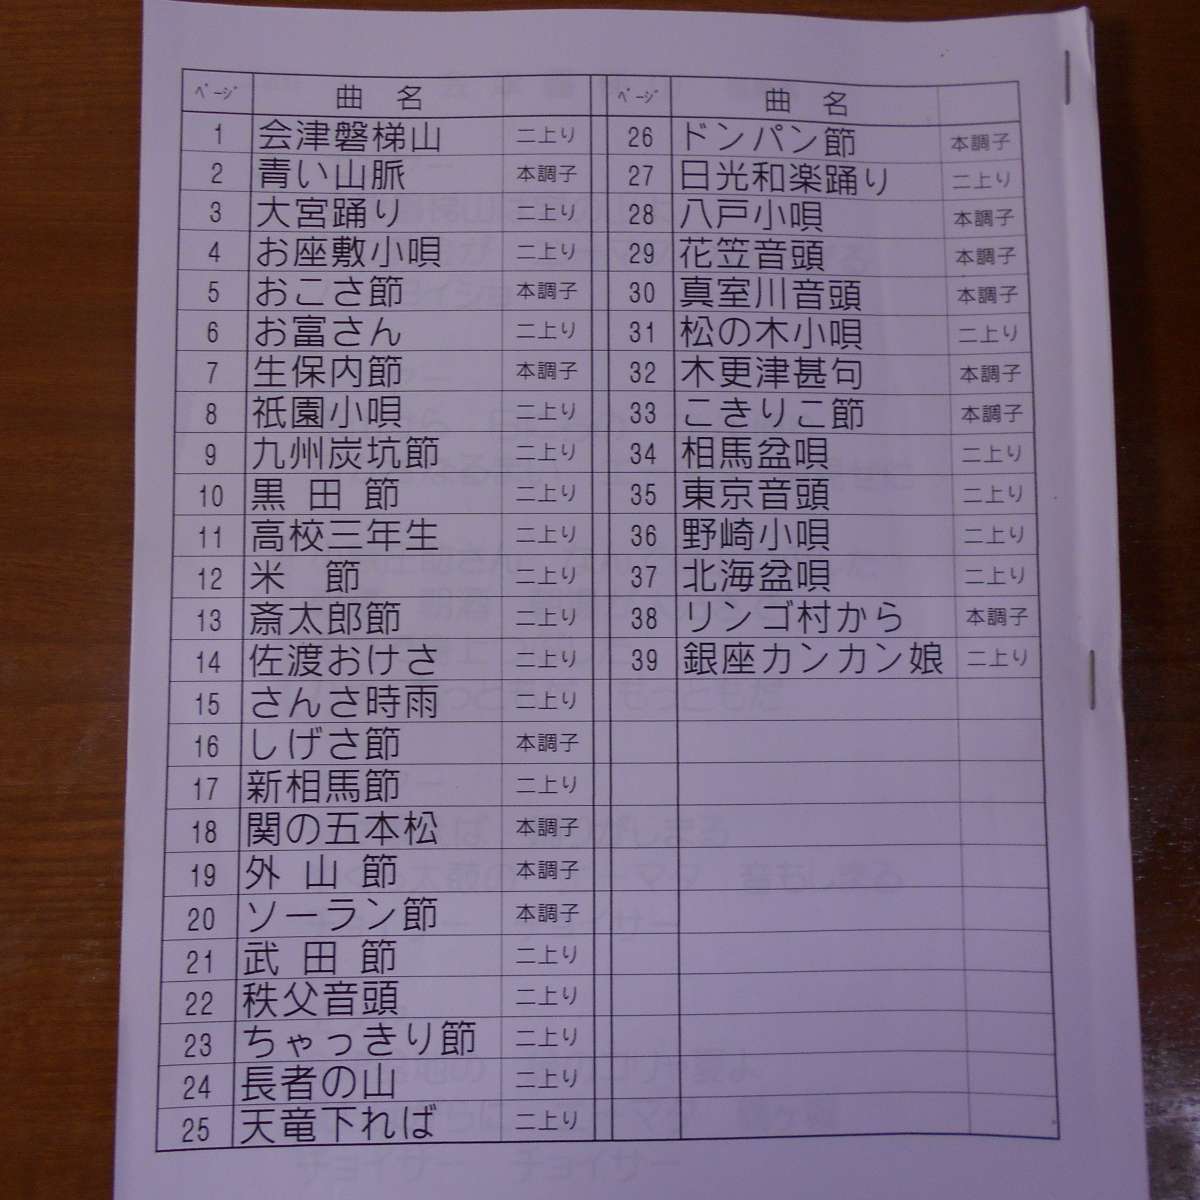 ページ 曲 名
1 会津磐梯山 二上り
2 青い山脈 本調子
3 大宮踊り 二上り
4 お座敷小唄 二上り
5 おこさ節 本調子
6 お富さん 二上り
7 生保内節 本調子
8 祇園小唄 二上り
9 九州炭坑節 二上り
10 黒 田 節 二上り
11 高校三年生 二上り
12 米 節 二上り
13 斎太郎節 二上り
14 佐渡おけさ 二上り
15 さんさ時雨 二上り
16 しげさ節 本調子
17 新相馬節 二上り
18 関の五本松 本調子
19 外 山 節 本調子
20 ソーラン節 本調子
21 武 田 節 二上り
22 秩父音頭 二上り
23 ちゃっきり節 二上り
24 長者の山 二上り
25 天竜下れば 二上り
ページ 曲 名
26 ドンパン節 本調子
27 日光和楽踊り 二上り
28 八戸小唄 本調子
29 花笠音頭 本調子
30 真室川音頭 本調子
31 松の木小唄 二上り
32 木更津甚句 本調子
33 こきりこ節 本調子
34 相馬盆唄 二上り
35 東京音頭 二上り
36 野崎小唄 二上り
37 北海盆唄 二上り
38 リンゴ村から 本調子
39 銀座カンカン娘 二上り